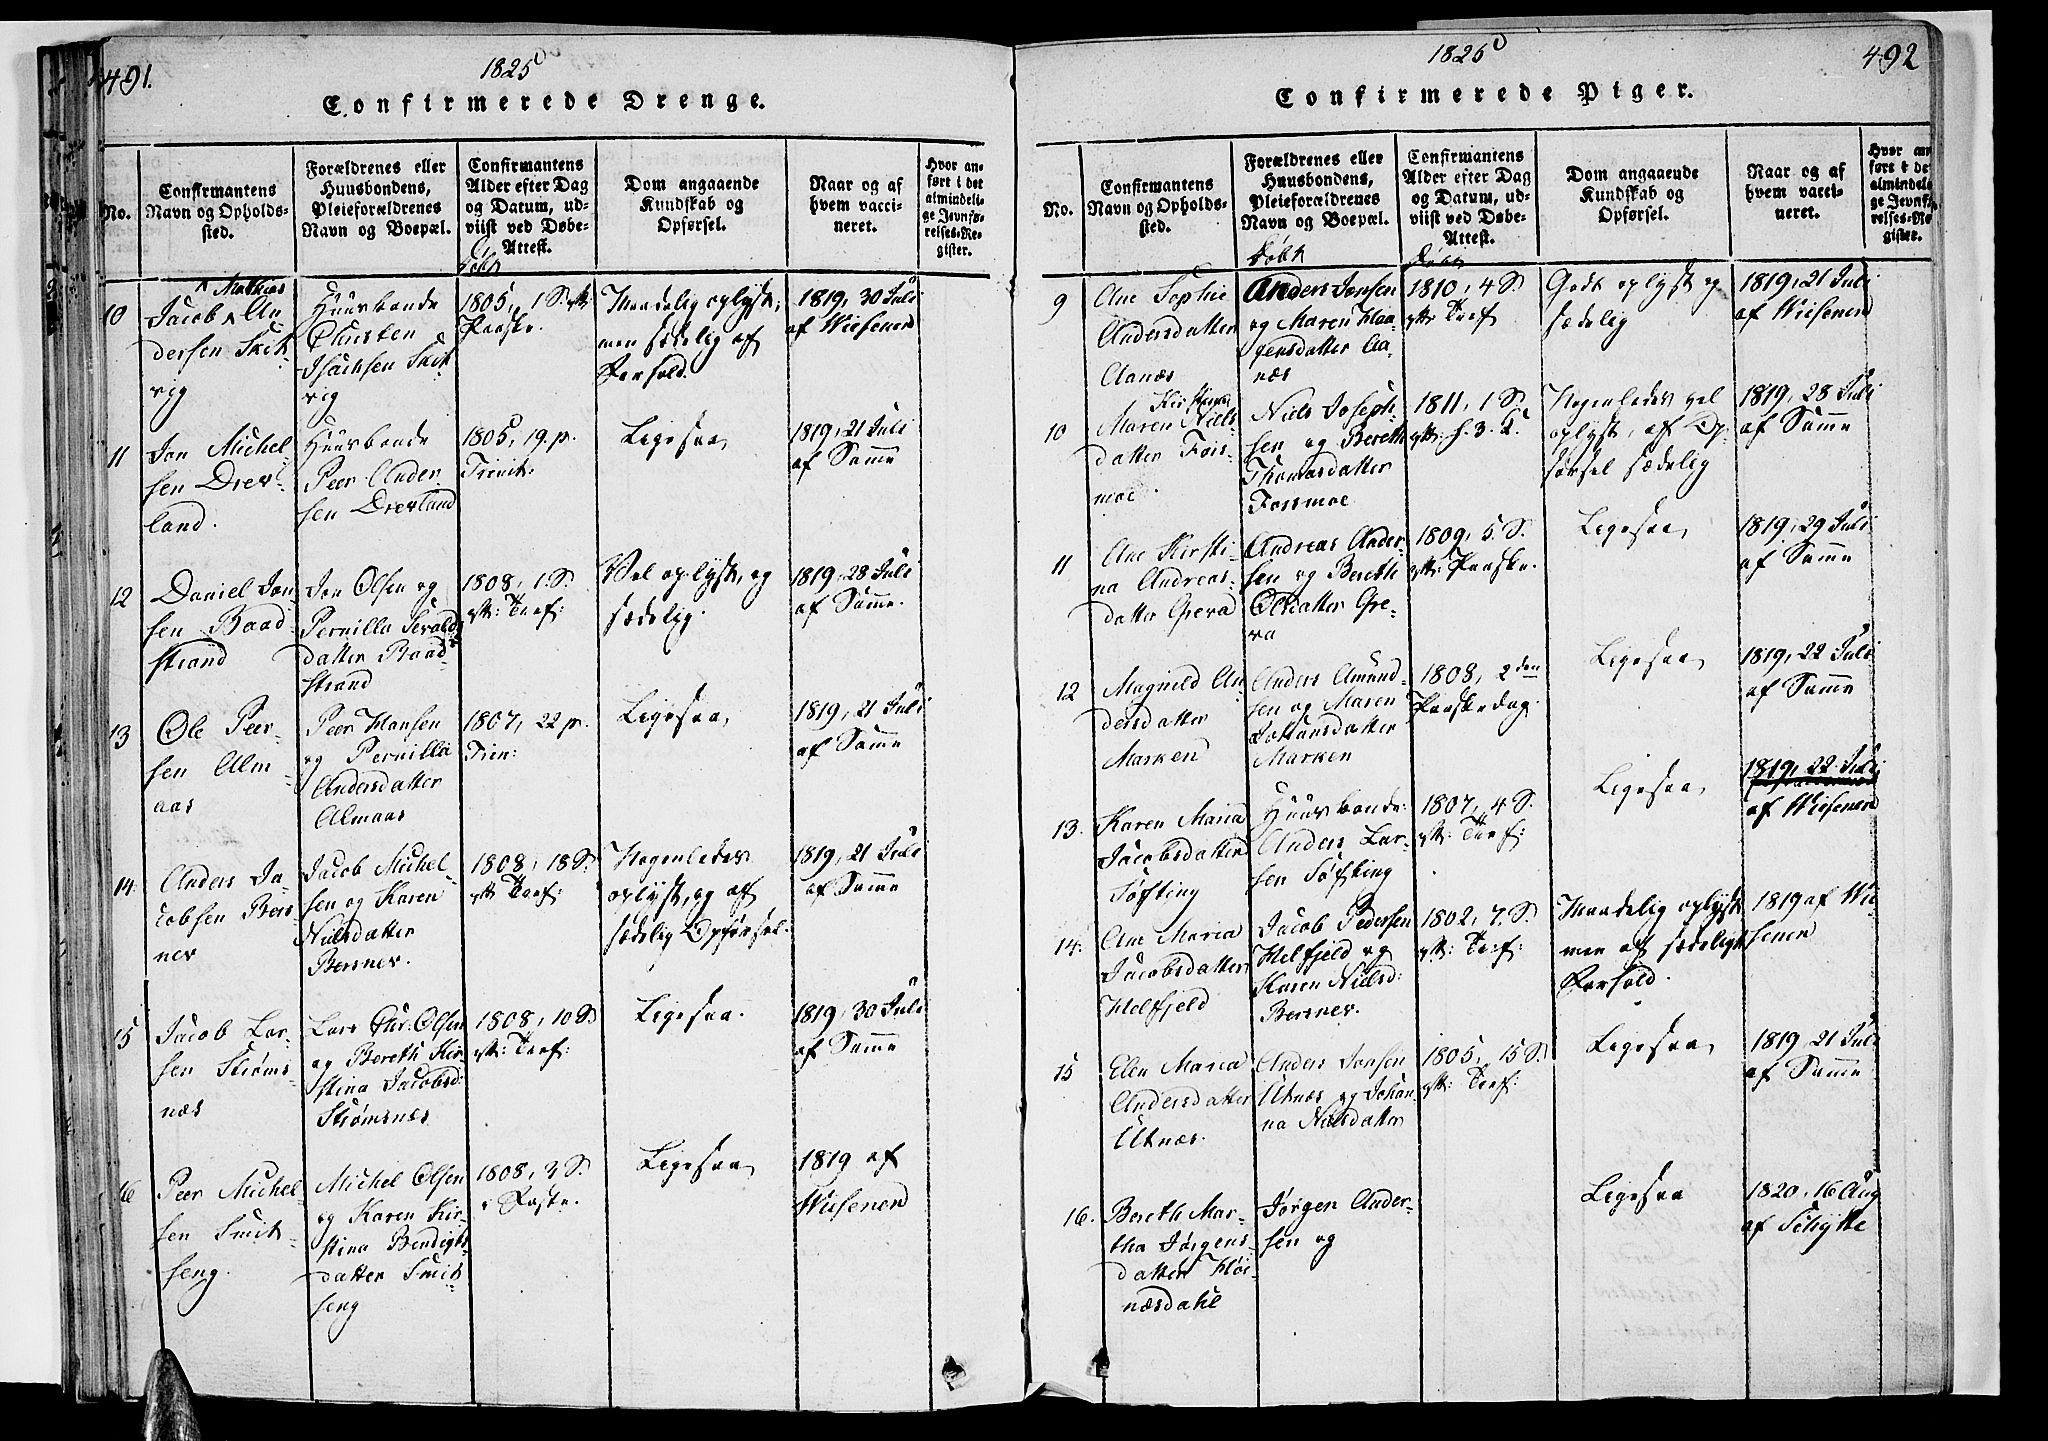 491.
1825
Confirmerede Drenge.
No.
Confirmantens
Navn og Opholds-
sted.
Forældrenes eller
Huusbondens,
Pleieforældrenes
Navn og Boepæl.
Confirmantens
Alder efter Dag
og Datum, ud-
viist ved Døbe-
Attest.
Døbt
Dom angaaende
Kundskab og
Opførsel.
Naar og af
hvem vacci-
neret.
Hvor an-
ført i det
almindeli-
ge Jevnfø-
relses-Re-
gister.
10
Mathias
Jacob ^ An
dersen Skit-
vig
Huusbonde
Christen
Isachsen Skit
vig
1805, 1 S. eft:
Paaske.
Maadelig oplyst,
men sædelig af
Forhold.
1819, 30 Juli
af Wisener
11
Jon Michel
sen Drev-
land.
Huusbonde
Peer Ander-
sen Drevland
1805, 19 p.
Trinit:
Ligesaa,
1819, 21 Juli
af Samme
12
Daniel Jon
sen Baad-
strand
Jon Olsen og
Pernilla Sivalds
datter Baad-
strand
1808, 1 S.
eft: Tref:
Vel oplyst, og
sædelig.
1819, 28 Juli
af Samme.
13
Ole Peer-
sen Alm-
aas
Peer Hansen
og Pernilla
Andersdatter
Almaas
1807, 22 p.
Trin:
Ligesaa,
1819, 21 Juli
af Samme
14.
Anders Ja-
cobsen Bers-
ner
Jacob Michel-
sen og Karen
Nielsdatter
Bersner.
1808, 18 S.
eft Tref:
Nogenledes
oplyst, og af
sædelig Opførsel.
1819, 21 Juli
af Samme
15
Jacob Lar-
sen Strøms-
næs
Lars Chr. Olsen
og Bereth Kir-
stina Jacobsd:
Strømsnæs
1808, 10 S.
eft: Tref:
Ligesaa.
1819, 30 Juli
af Samme
16
Peer Michel-
sen Smit-
seng.
Michel Olsen
og Karen Kir-
stina Bendigts-
datter Smit
seng
1808, 3 S.
i Faste.
Ligesaa,
1819 af
Wisener
1825
492
Confirmerede Piger.
No.
Confirmantens
Navn og Opholds-
sted.
Forældrenes eller
Huusbondens,
Pleieforældrenes
Navn og Boepæl.
Døbt
Confirmantens
Alder efter Dag
og Datum, ud-
viist ved Døbe-
Attest.
Døbt
Dom angaaende
Kundskab og
Opførsel.
Naar og af
hvem vacci-
neret.
Hvor an-
ført i det
almindeli-
ge Jevnfø-
relses-Re-
gister.
9
Ane Sophie
Andersdatter
Aanæs
Anders Jonsen
og Maren Haa-
gensdatter Aa-
næs
1810, 4 S.
eft: Tref
Godt oplyst og
sædelig
1819, 21 Juli
af Wisener
10
Kirstina
Maren Niels
datter Fors-
moe.
Niels Joseph-
sen og Bereth
Thomasdatter
Forsmoe
1811, 1 S.
eft: h. 3 K.
Nogenledes vel
oplyst, af Op-
førsel sædelig
1819, 28 Juli
af Samme
11
Ane Kirsti-
na Andreas-
datter Grova
Andreas Ander-
sen og Bereth
Olsdatter Gro-
va
1809, 5. S.
eft: Paaske.
Ligesaa,
1819, 29 Juli
af Samme
12
Magnild An
dersdatter
Marken
Anders Amund-
sen og Maren
Johansdatter
Marken
1808, 2den
Paaskedag.
Ligesaa,
1819, 22 Juli
af Samme
13.
Karen Maria
Jacobsdatter
Søfting
Huusbonde:
Anders Lar-
sen Søfting
1807, 4 S.
eft: Tref:
Ligesaa,
1819, 22 Juli
af Wisener
14.
Ane Maria
Jacobsdatter
Helfjeld
Jacob Pedersen
Helfjeld og
Karen Nielsd:
Bersner.
1802, 7. S.
eft: Tref:
Maadelig oplyst
men af sædeligt
Forhold.
1819 af Wi-
sener
15
Elen Maria
Andersdatter
Utnæs.
Anders Jonsen
Utnæs og Johan-
na Nilsdatter
1805, 15 S.
eft: Tref:
Ligesaa,
1819, 21 Juli
af Samme
16.
Bereth Mar-
tha Jørgens-
datter Fløt-
næsdahl
Jørgen Ander-
sen og
Ligesaa
1820, 16 Aug
af Schytte